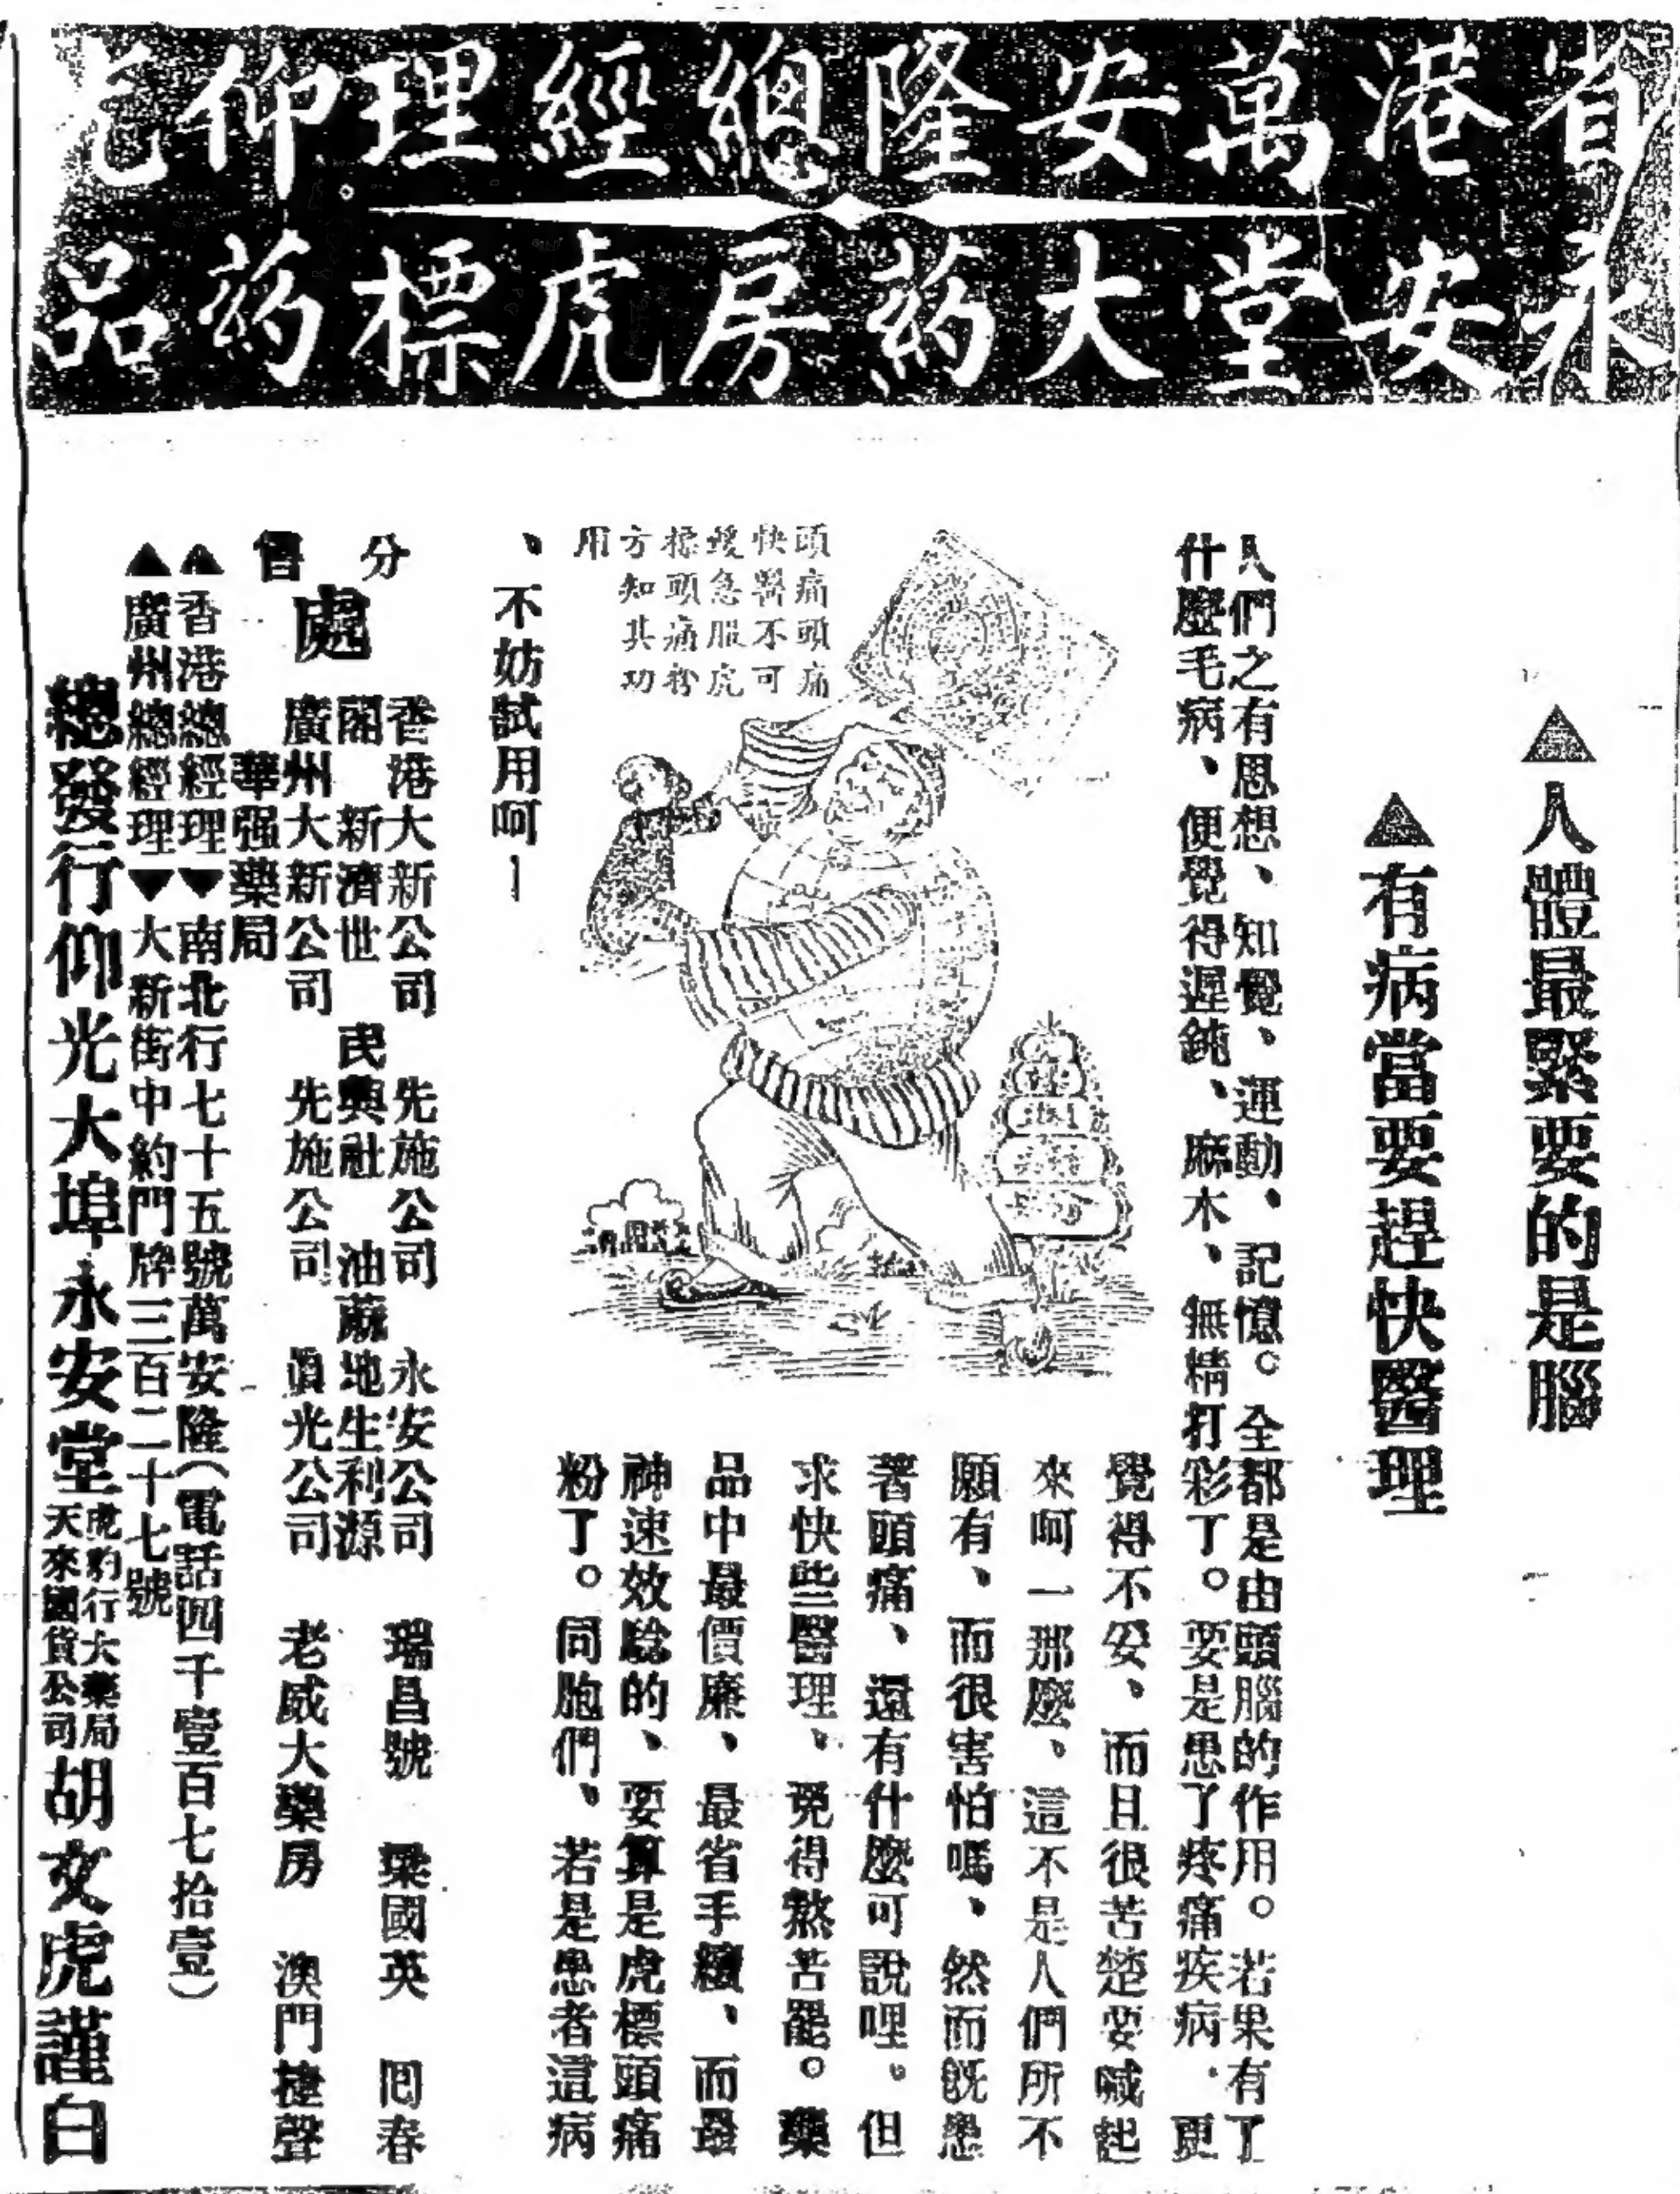 省港萬安隆總經理仰光
永安堂大药房虎標药品
▲人體最緊要的是腦
▲有病當要趕快醫理
人們之有思想、知覺、運動、記憶。全都是由頭腦的作用。若果有了
什麼毛病、便覺得遲鈍、麻木、無精打彩了。要是患了疼痛疾病、更
覺得不妥、而且很苦楚要喊起
來呵一那麼、這不是人們所不
願有、而很害怕嗎、然而既患
著頭痛、還有什麼可說哩。但
求快些醫理、免得熬苦罷。藥
品中最價廉、最省手續、而最
神速效騐的、要算是虎標頭痛
粉了。同胞們、若是患者這病
、不妨試用呵一
頭痛頭痛
快醫不可
緩急服虎
標頭痛粉
方知其功
用
分售處
香港大新公司 先施公司 永安公司 瑞昌號 梁國英 同春
閣 新濟世 民興社 油蔴地生利源
廣州大新公司 先施公司 眞光公司 老威大藥房 澳門捷聲
華强藥局
▲香港總經理▼南北行七十五號萬安隆（電話四千壹百七拾壹）
▲廣州總經理▼大新街中約門牌三百二十七號
總發行仰光大埠永安堂 虎豹行大藥局 天來國貨公司 胡文虎謹白